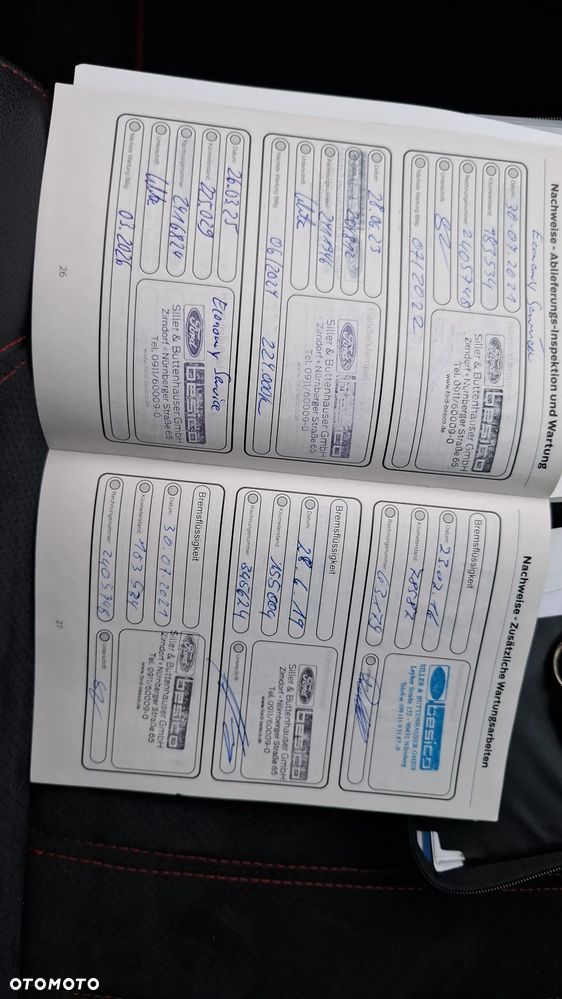 Nachweise - Ablieferungs-Inspektion und Wartung
Economy Service
Datum
30.07.2021
Kilometerstand
183534
Rechnungsnummer
2405748
Unterschrift
Nächste Wartung fällig:
07.2022
Ford besico
Siller & Buttenhauser GmbH
Zirndorf • Nürnberger Straße 65
Tel. 0911/60009-0
www.ford-besico.de
Datum
28.06.23
Rechnungsnummer
Unterschrift
Nächste Wartung fällig:
06/2024
224.000k
Ford besico
Siller & Buttenhauser GmbH
Zirndorf • Nürnberger Straße 65
Tel. 0911/60009-0
Datum
26.03.25
Kilometerstand
225029
Rechnungsnummer
2416824
Unterschrift
Nächste Wartung fällig:
03.2026
Economy Service
Ford besico
Siller & Buttenhauser GmbH
Zirndorf • Nürnberger Straße 65
Tel. 0911/60009-0
26
Nachweise - Zusätzliche Wartungsarbeiten
Bremsflüssigkeit
Datum
23.02.16
Kilometerstand
Rechnungsnummer
Unterschrift
Ford besico
SILLER & BUTTENHAUSER GMBH
Leyher Straße 133 - 90431 Nürnberg
Bremsflüssigkeit
Datum
28.6.19
Kilometerstand
155004
Rechnungsnummer
346624
Unterschrift
Ford besico
Siller & Buttenhauser GmbH
Zirndorf • Nürnberger Straße 65
Tel. 0911/60009-0
www.ford-besico.de
Bremsflüssigkeit
Datum
30.07.2021
Kilometerstand
183534
Rechnungsnummer
2405748
Unterschrift
Ford besico
Siller & Buttenhauser GmbH
Zirndorf • Nürnberger Straße 65
Tel. 0911/60009-0
www.ford-besico.de
27
OTOMOTO